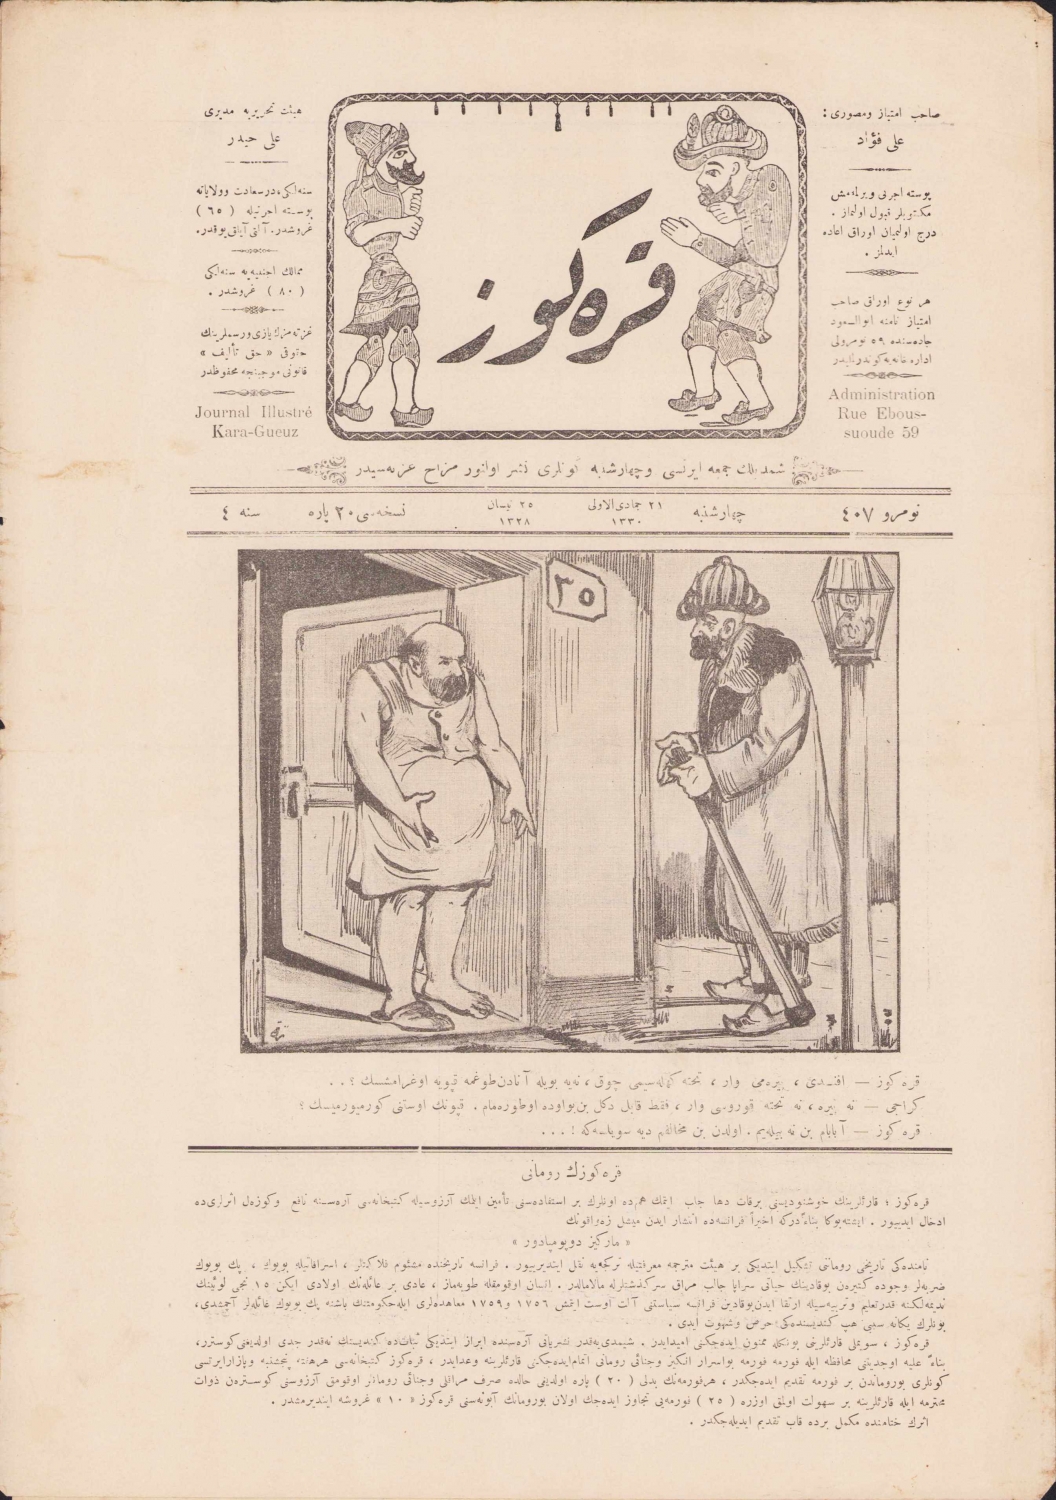 صاحب امتیاز ومصوری :
علی فؤاد
پوسته اجرتی ویرلمه‌مش
مکتوبلر قبول اولنماز .
درج اولنمیان اوراق اعاده
ایدلمز .
هر نوع اوراق صاحب
امتیاز نامنه ابوالسعود
جاده‌سنده ٥٩ نومرولی
اداره‌خانه‌یه کوندرلیدر
Administration
Rue Ebous-
suoude 59
قره‌کوز
هیئت تحریریه مدیری
علی حیدر
سنه‌لکی درسعادت وولایاته
پوسته اجرتیله ( ٦٥ )
غروشدر. آلتی آیلغی یوقدر.
ممالك اجنبیه‌یه سنه‌لکی
( ٨٠ ) غروشدر .
غزته‌مزك یازی ورسملرینك
حقوقی « حق تألیف »
قانونی موجبنجه محفوظدر
Journal Illustré
Kara-Gueuz
شمدیلك جمعه ایرتسی وچهارشنبه کونلری نشر اولنور مزاح غزته‌سیدر
نومرو ٤٠٧ چهارشنبه ٢١ جمادی‌الاولی ١٣٣٠ ٢٥ نیسان ١٣٢٨ نسخه‌سی ٢٠ پاره سنه ٤
٣٥
قره کوز — افندی ، پیره‌می وار ، تخته کهله‌سیمی چوق ، نه‌یه بویله آنادن طوغمه قپویه اوغرامشسك ؟ . .
کراجی — نه پیره ، نه تخته قوروسی وار ، فقط قابل دکل بن بواوده اوطوره‌مام . قپونك اوستنی کورمیورمیسك ؟
قره کوز — آ بابام بن نه بیله‌یم . اولدن بن مخالفم دیه سویلسه‌ك ! . . .
قره‌کوزك رومانی
قره‌کوز ؛ قارئلرینك خوشنودیسنی برقات دها جلب ایتمك هم‌ده اونلرك بر استفاده‌سنی تأمین ایلمك آرزوسیله کتبخانه‌سی آره‌سنه نافع وکوزل اثرلری‌ده
ادخال ایدییور . ایشته بوکا بناءً درکه اخیراً فرانسه‌ده انتشار ایدن میشل زه‌واقونك
« مارکیز دوپومپادور »
نامنده‌کی تاریخی رومانی تشکیل ایتدیکی بر هیئت مترجمه معرفتیله ترکجه‌یه نقل ایتدیرییور . فرانسه تاریخنده مشئوم فلاکتلر ، اسرافاتیله بویوك ، پك بویوك
ضربه‌لر وجوده کتیرن بوقادینك حیاتی سراپا جالب مراق سرکذشتلرله مالامالدر . انسان اوقومقله طویه‌ماز ، عادی بر عائله‌نك اولادی ایکن ١٥ نجی لوئینك
ندیمه‌لکنه قدر تعلیم وتربیه‌سیله ارتقا ایدن بوقادین فرانسه سیاستنی آلت اوست ایتمش ١٧٥٦ و ١٧٥٩ معاهده‌لری ایله حکومتك باشنه پك بویوك غائله‌لر آچمشدی،
بونلرك یکانه سببی هپ کندیسنده‌کی حرص وشهوت ایدی .
قره‌کوز ، سویملی قارئلرینی بونکله ممنون ایده‌جکنی امیدایدر . شیمدی‌یه‌قدر نشریاتی آره‌سنده ابراز ایتدیکی ثبات‌ده کندیسنك نه‌قدر جدی اولدیغنی کوسترر،
بناءً علیه اوجدیتنی محافظه ایله فورمه فورمه بواسرار انکیز وجنائی رومانی اتمام ایده‌جکنی قارئلرینه وعدایدر ، قره‌کوز کتبخانه‌سی هرهفته پنجشنبه وپازارایرتسی
کونلری بورومانردن بر فورمه تقدیم ایده‌جکدر ، هرفورمه‌نك بدلی ( ٢٠ ) پاره اولدیغی حالده صرف مراقلی وجنائی رومانلر اوقومق آرزوسنی کوسترەن ذوات
محترمه ایله قارئلرینه بر سهولت اولمق اوزره ( ٢٥ ) فورمه‌یی تجاوز ایده‌جك اولان بورومانك آبونه‌سنی قره‌کوز « ١٠ » غروشه ایندیرمشدر .
اثرك ختامنده مکمل برده قاب تقدیم ایدیله‌جکدر .